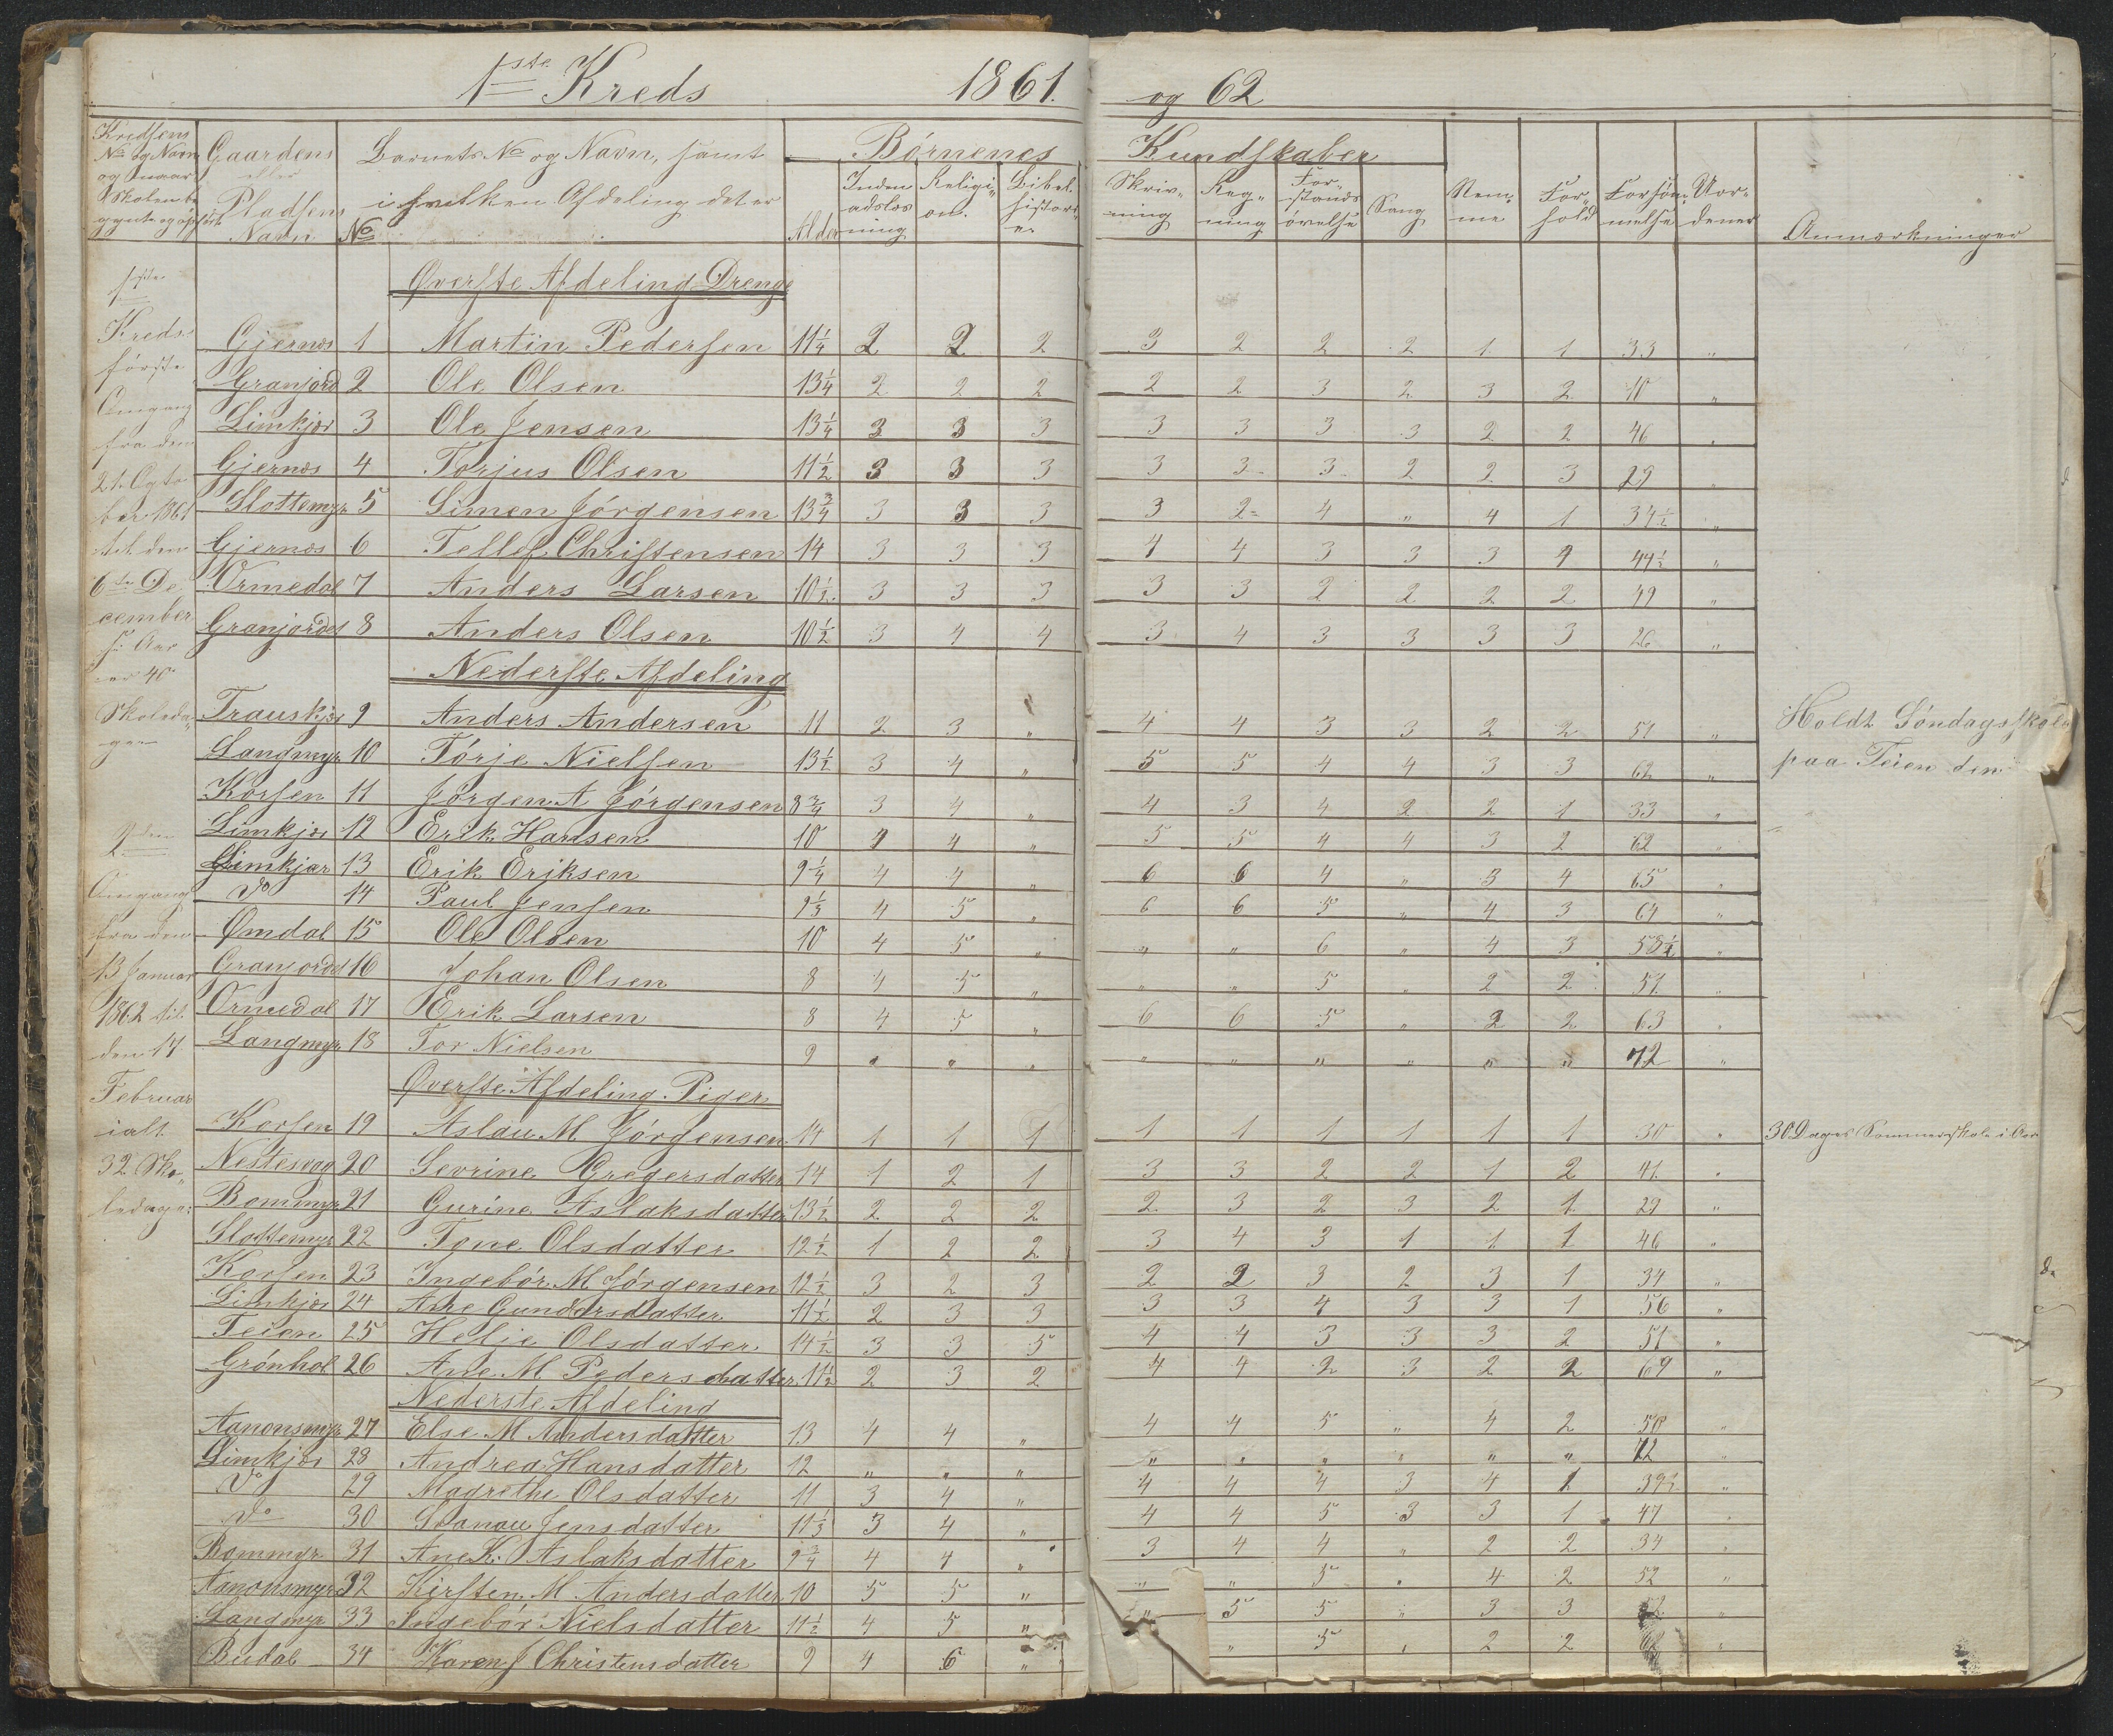 1ste Kreds 1861. og 62
Kredsens No og Navn og naar Skolen be gyndte og ophørte
Gaardens eller Pladsens Navn
No
Barnets No og Navn, samt i hvilken Afdeling det er
Alder
Børnenes Kundskaber
Inden adslæs ning
Religi on.
Bibel histori e
Skriv ning
Reg ning
For stands øvelse
Sang
Nem me
For hold
Forsøm melse
Uor dener
Anmærkninger
1ste Kreds første Omgang fra den 21. Octo ber 1861 til den 6te De cember s: Aar er 40 Skoleda ger
2den Omgang fra den 13 Januar 1862 til den 17 Februar ialt 32 Sko ledage:
Øverste Afdeling Drenge
Gjernæs 1 Martin Pedersen 11 1/4 2 2 2 3 2 2 2 1 1 33 "
Granjord 2 Ole Olsen 13 1/4 2 2 2 2 2 3 2 3 2 40 "
Limkjær 3 Ole Jensen 13 1/4 3 3 3 3 3 3 3 2 2 46 "
Gjernæs 4 Torjus Olsen 11 1/2 3 3 3 3 3 3 2 2 3 29 "
Slottemyr 5 Simen Jørgensen 13 3/4 3 3 3 3 2 4 " 4 1 34 1/2 "
Gjernæs 6 Tellef Christensen 14 3 3 3 4 4 3 3 3 4 44 1/2 "
Ormedal 7 Anders Larsen 10 1/2 3 3 3 3 3 2 2 2 2 49 "
Granjordet 8 Anders Olsen 10 1/2 3 4 4 3 4 3 3 3 3 26 "
Nederste Afdeling
Trauskjær 9 Anders Andersen 11 2 3 " 4 4 3 3 2 2 51 " Holdt Søndagsskole
Langmyr 10 Tørje Nielsen 13 1/2 3 4 " 5 5 4 4 3 3 62 " paa Teien den
Korsen 11 Jørgen A Jørgensen 8 3/4 3 4 " 4 3 4 2 2 1 33 "
Limkjær 12 Erik Hansen 10 4 4 " 5 5 4 4 3 2 62 "
Limkjær 13 Erik Eriksen 9 1/4 4 4 " 6 6 4 " 3 4 65 "
Do 14 Paul Jensen 9 1/3 4 5 " 6 6 5 " 4 3 64 "
Ømdal 15 Ole Olsen 10 4 5 " " " 6 " 4 3 58 1/2 "
Granjordet 16 Johan Olsen 8 4 5 " " " 5 " 2 2 51 "
Ormedal 17 Erik Larsen 8 4 5 " 6 6 5 " 2 2 63 "
Langmyr 18 Tor Nielsen 9 " " " " " " " " " 72 "
Øverste Afdeling Piger
Korsen 19 Aslau M Jørgensen 14 1 1 1 1 1 1 1 1 1 30 " 30 Dages Sommerskole i Aar
Nestesvag 20 Sevrine Gregersdatter 14 1 2 1 3 3 2 2 1 2 41 "
Bommyr 21 Gurine Aslaksdatter 13 1/2 2 2 2 2 3 2 3 2 1 29 "
Slottemyr 22 Tone Olsdatter 12 1/2 1 2 2 3 4 3 1 1 1 46 "
Korsen 23 Ingebór M Jørgensen 12 1/2 3 2 3 2 2 3 2 3 1 34 "
Limkjær 24 Ane Gundersdatter 11 1/2 2 3 3 3 3 4 3 3 1 56 "
Teien 25 Helie Olsdatter 14 1/2 3 3 5 4 4 3 3 3 2 51 "
Grønhol 26 Ane M Pedersdatter 11 1/2 2 3 2 4 4 2 3 2 2 69 "
Nederste Afdeling
Aanonsmyr 27 Else M Andersdatter 13 4 4 " 4 4 5 " 4 2 50 "
Limkjær 28 Andrea Hansdatter 12 " " " " " " " " " 72 "
Do 29 Magrethe Olsdatter 11 3 4 " 4 4 4 3 4 1 39 1/2 "
Do 30 Svanau Jensdatter 11 1/3 3 4 " 4 4 5 3 3 1 47 "
Bommyr 31 Ane K. Aslaksdatter 9 3/4 4 4 " 3 4 4 " 2 2 34 "
Aanonsmyr 32 Kirsten M Andersdatter 10 5 5 " " " 5 " 4 2 52 "
Langmyr 33 Ingebor Nielsdatter 11 1/2 4 5 " " 5 5 " 3 3 "
Budal 34 Karen J Christensdatter 9 4 6 " " 5 " 2 2 62 "